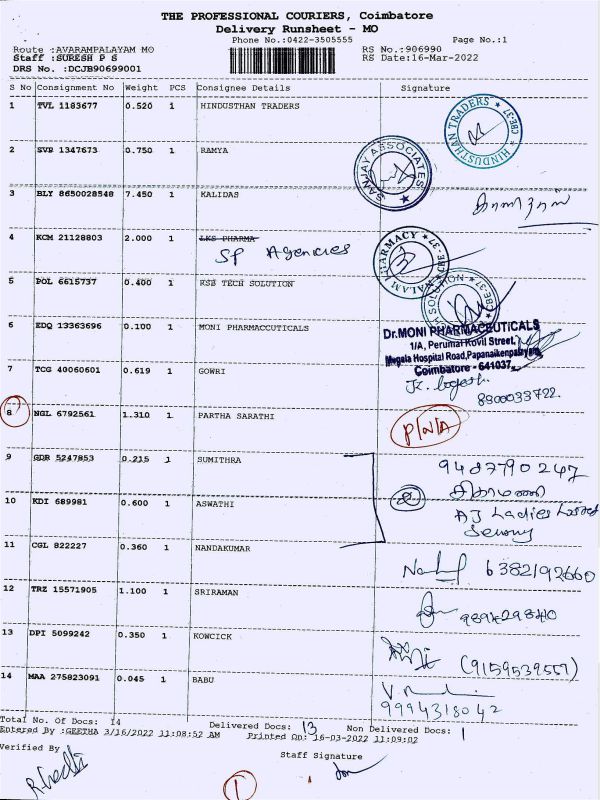 THE PROFESSIONAL COURIERS, Coimbatore
Delivery Runsheet - MO
Phone No.:0422-3505555 Page No.:1
Route :AVARAMPALAYAM MO RS No.:906990
Staff :SURESH P S RS Date:16-Mar-2022
DRS No. :DCJB90699001
S No Consignment No Weight PCS Consignee Details Signature
1 TVL 1183677 0.520 1 HINDUSTHAN TRADERS
HINDUSTHAN TRADERS ★ CBE-37 ★
2 SVB 1347673 0.750 1 RAMYA
SANJAY ASSOCIATES ★
3 BLY 8650028548 7.450 1 KALIDAS
4 KCM 21128803 2.000 1 LKS PHARMA
SP Agencies
PHARMACY ★ CBE-37 ★
5 POL 6615737 0.400 1 KSB TECH SOLUTION
SOLUTION ★ CBE-37 ★
6 EDQ 13363696 0.100 1 MONI PHARMACCUTICALS
Dr.MONI PHARMACEUTICALS
1/A, Perumal Kovil Street,
Mugala Hospital Road,Papanaikenpalayam,
Coimbatore - 641037.
7 TCG 40060601 0.619 1 GOWRI
8900033722
8 NGL 6792561 1.310 1 PARTHA SARATHI P/N/A
9 GDR 5247853 0.215 1 SUMITHRA 9487790247
10 KDI 689981 0.600 1 ASWATHI
AJ Ladies
11 CGL 822227 0.360 1 NANDAKUMAR
6382192660
12 TRZ 15571905 1.100 1 SRIRAMAN
13 DPI 5099242 0.350 1 KOWCICK
(9159539557)
14 MAA 275823091 0.045 1 BABU
9994318042
Total No. Of Docs: 14 Delivered Docs: 13 Non Delivered Docs: 1
Entered By :GEETHA 3/16/2022 11:08:52 AM Printed On: 16-03-2022 11:09:02
Verified By Staff Signature
1